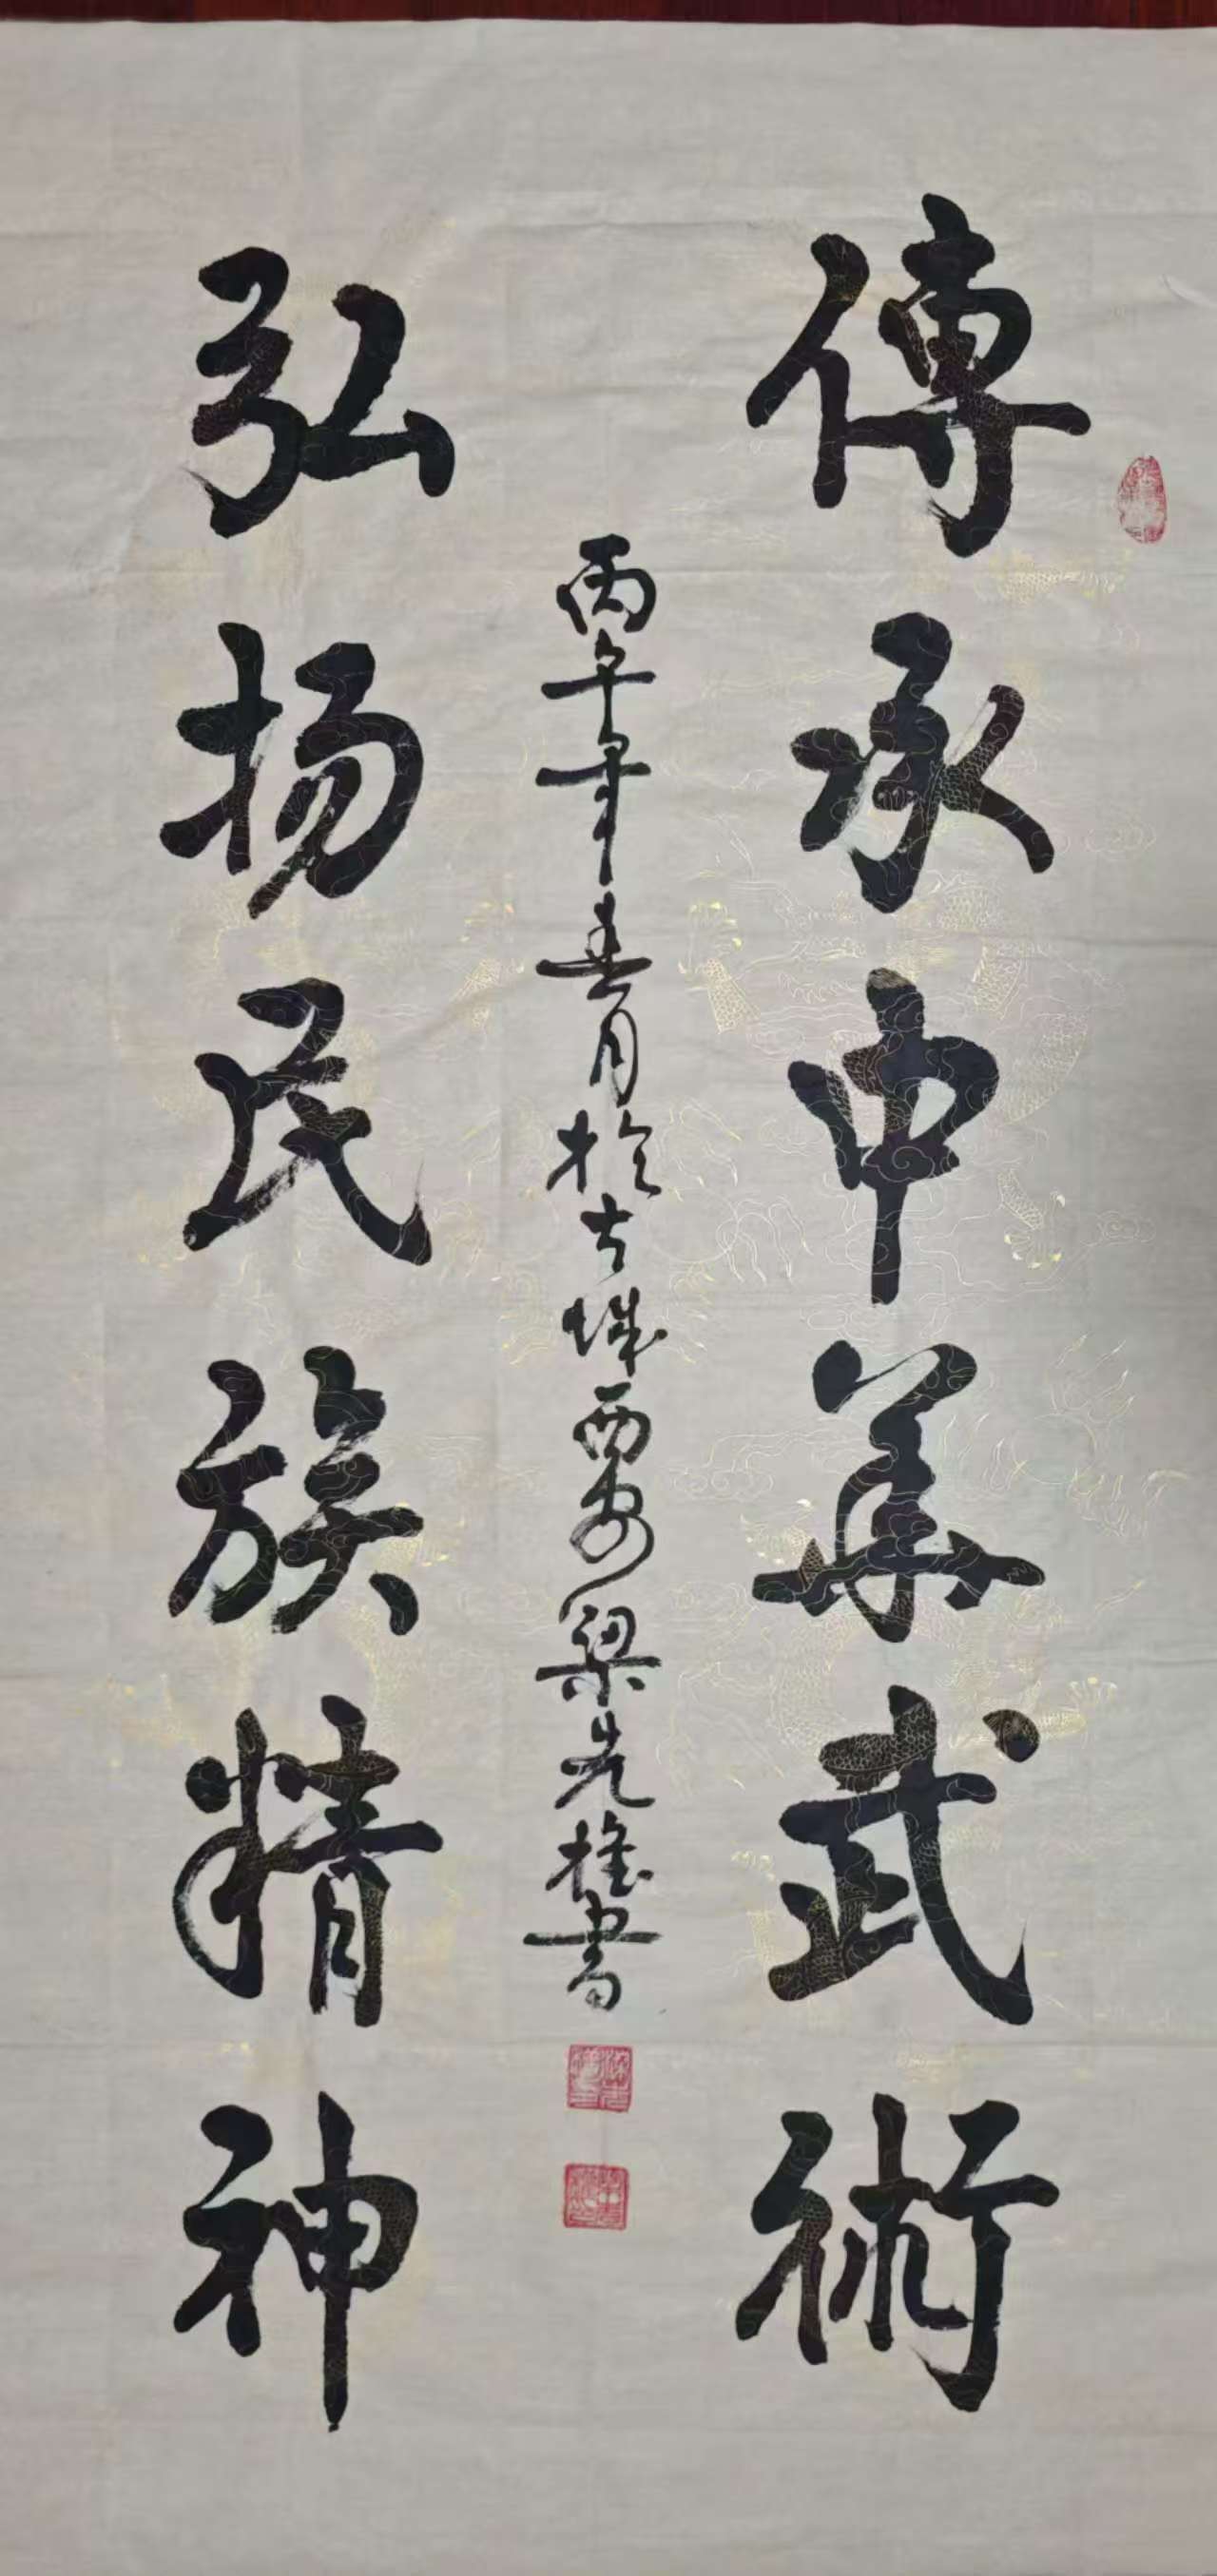 傳承中華武術
弘扬民族精神
丙午年春月於古城西安梁先 書